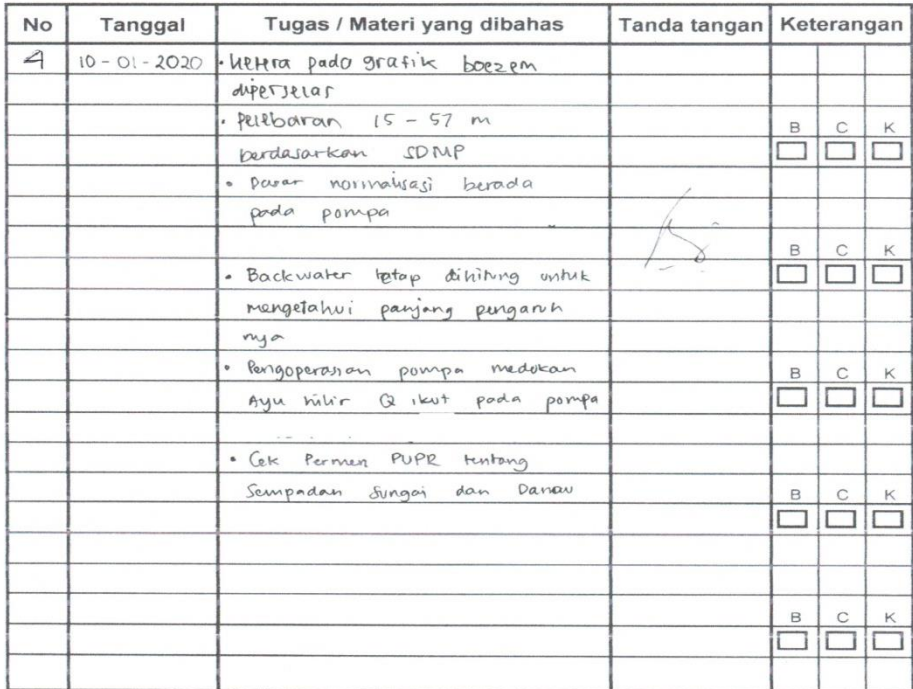 No Tanggal Tugas / Materi yang dibahas Tanda tangan Keterangan
4 10-01-2020 • pada grafik boezem
diperjelas
• Pelebaran 15 - 57 m
B C K
berdasarkan SDMP
• Dasar normalisasi berada
pada pompa
B C K
• Backwater tetap dihitung untuk
mengetahui panjang pengaruh
nya
• Pengoperasian pompa medokan
B C K
Ayu hilir Q ikut pada pompa
• Cek Permen PUPR tentang
Sempadan Sungai dan Danau
B C K
B C K